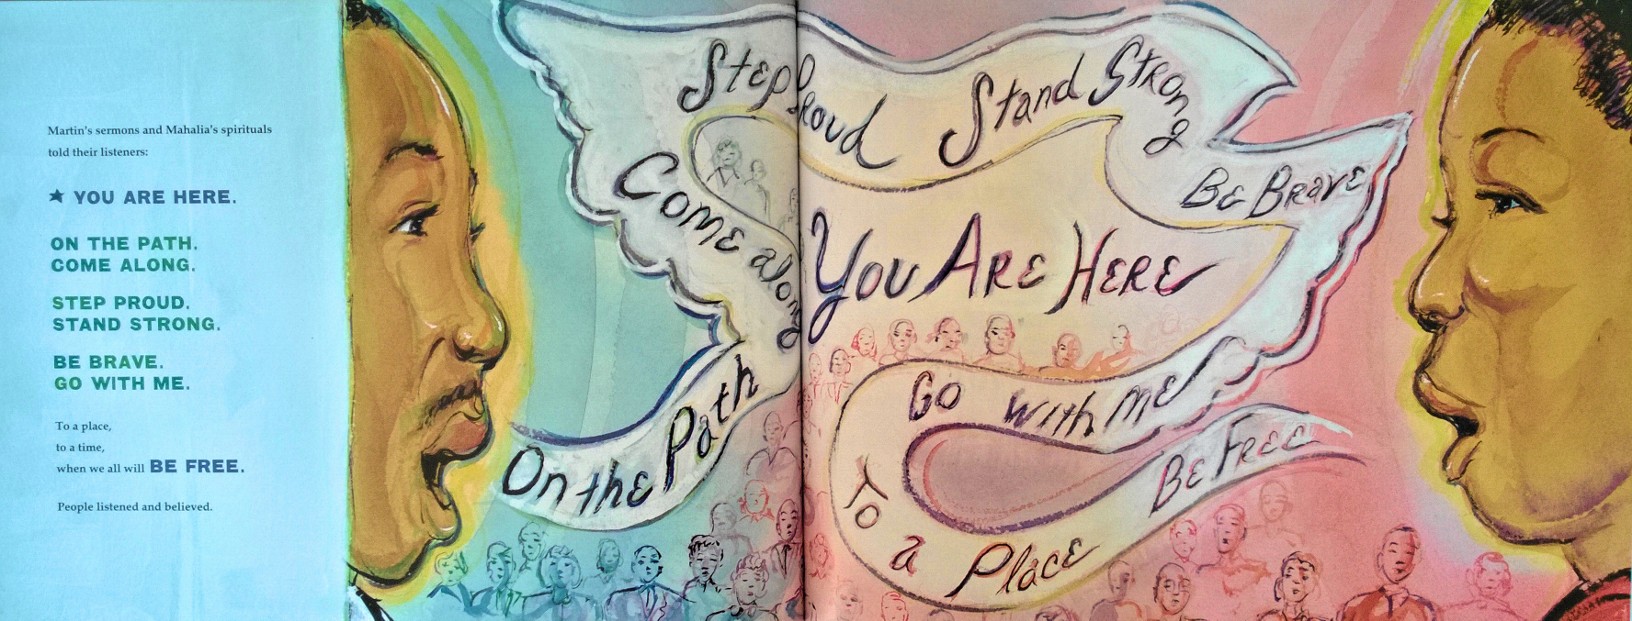 Martin's sermons and Mahalia's spirituals
told their listeners:
★ YOU ARE HERE.
ON THE PATH.
COME ALONG.
STEP PROUD.
STAND STRONG.
BE BRAVE.
GO WITH ME.
To a place,
to a time,
when we all will BE FREE.
People listened and believed.
On the Path
Come along
Step Proud Stand Strong
Be Brave
You Are Here
Go with Me
To a Place
Be Free